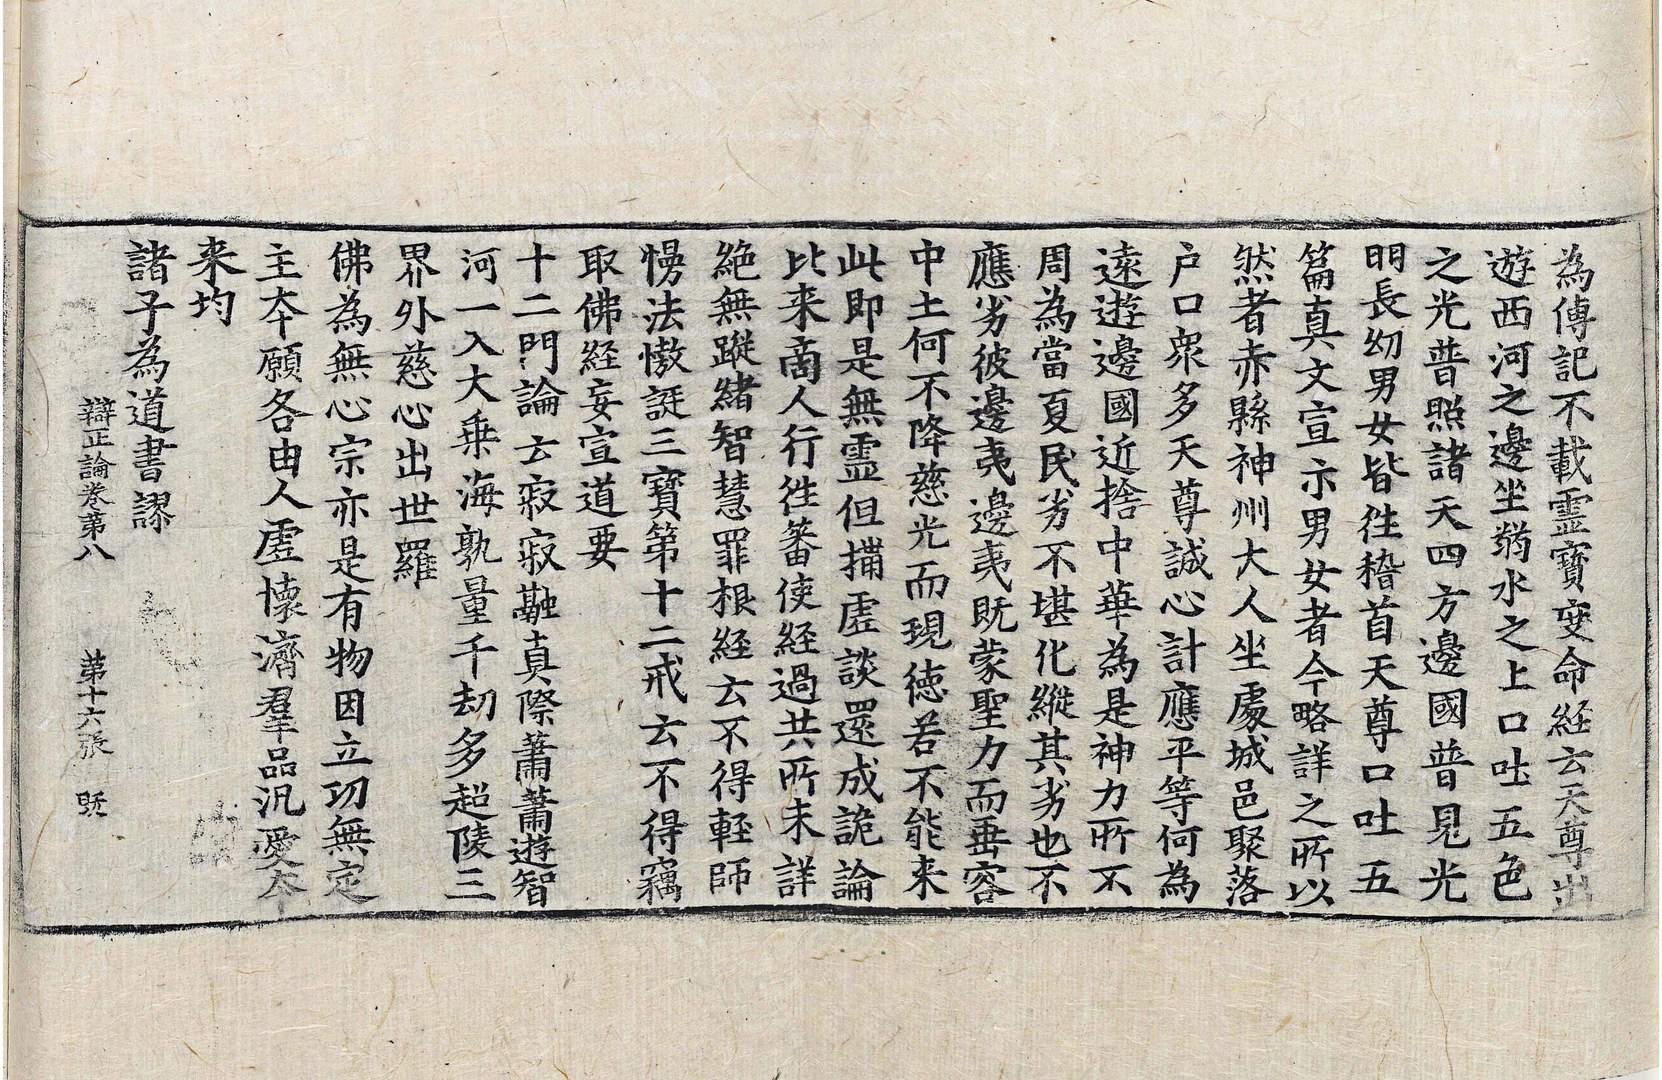 為傳記不載靈寶受命経云天尊出
遊西河之邊坐弱水之上口吐五色
之光普照諸天四方邊國普見光
明長幼男女皆徃稽首天尊口吐五
篇真文宣示男女者今略詳之所以
然者赤縣神州大人坐處城邑聚落
户口衆多天尊誠心計應平等何為
遠遊邊國近捨中華為是神力所不
周為當夏民劣不堪化縱其劣也不
應劣彼邊夷邊夷既蒙聖力而垂容
中土何不降慈光而現徳若不能来
此即是無靈但搆虛談還成詭論
比来商人行徃蕃使経過共所未詳
絶無蹤緒智慧罪根経云不得輕師
慢法慠誑三寶第十二戒云不得竊
取佛経妄宣道要
十二門論云寂寂融真際蕭蕭遊智
河一入大乗海孰量千劫多超陵三
界外慈心出世羅
佛為無心宗亦是有物因立功無定
主夲願各由人虛懷濟羣品汎愛夲
来均
諸子為道書謬
辯正論卷第八　第十六張　旣